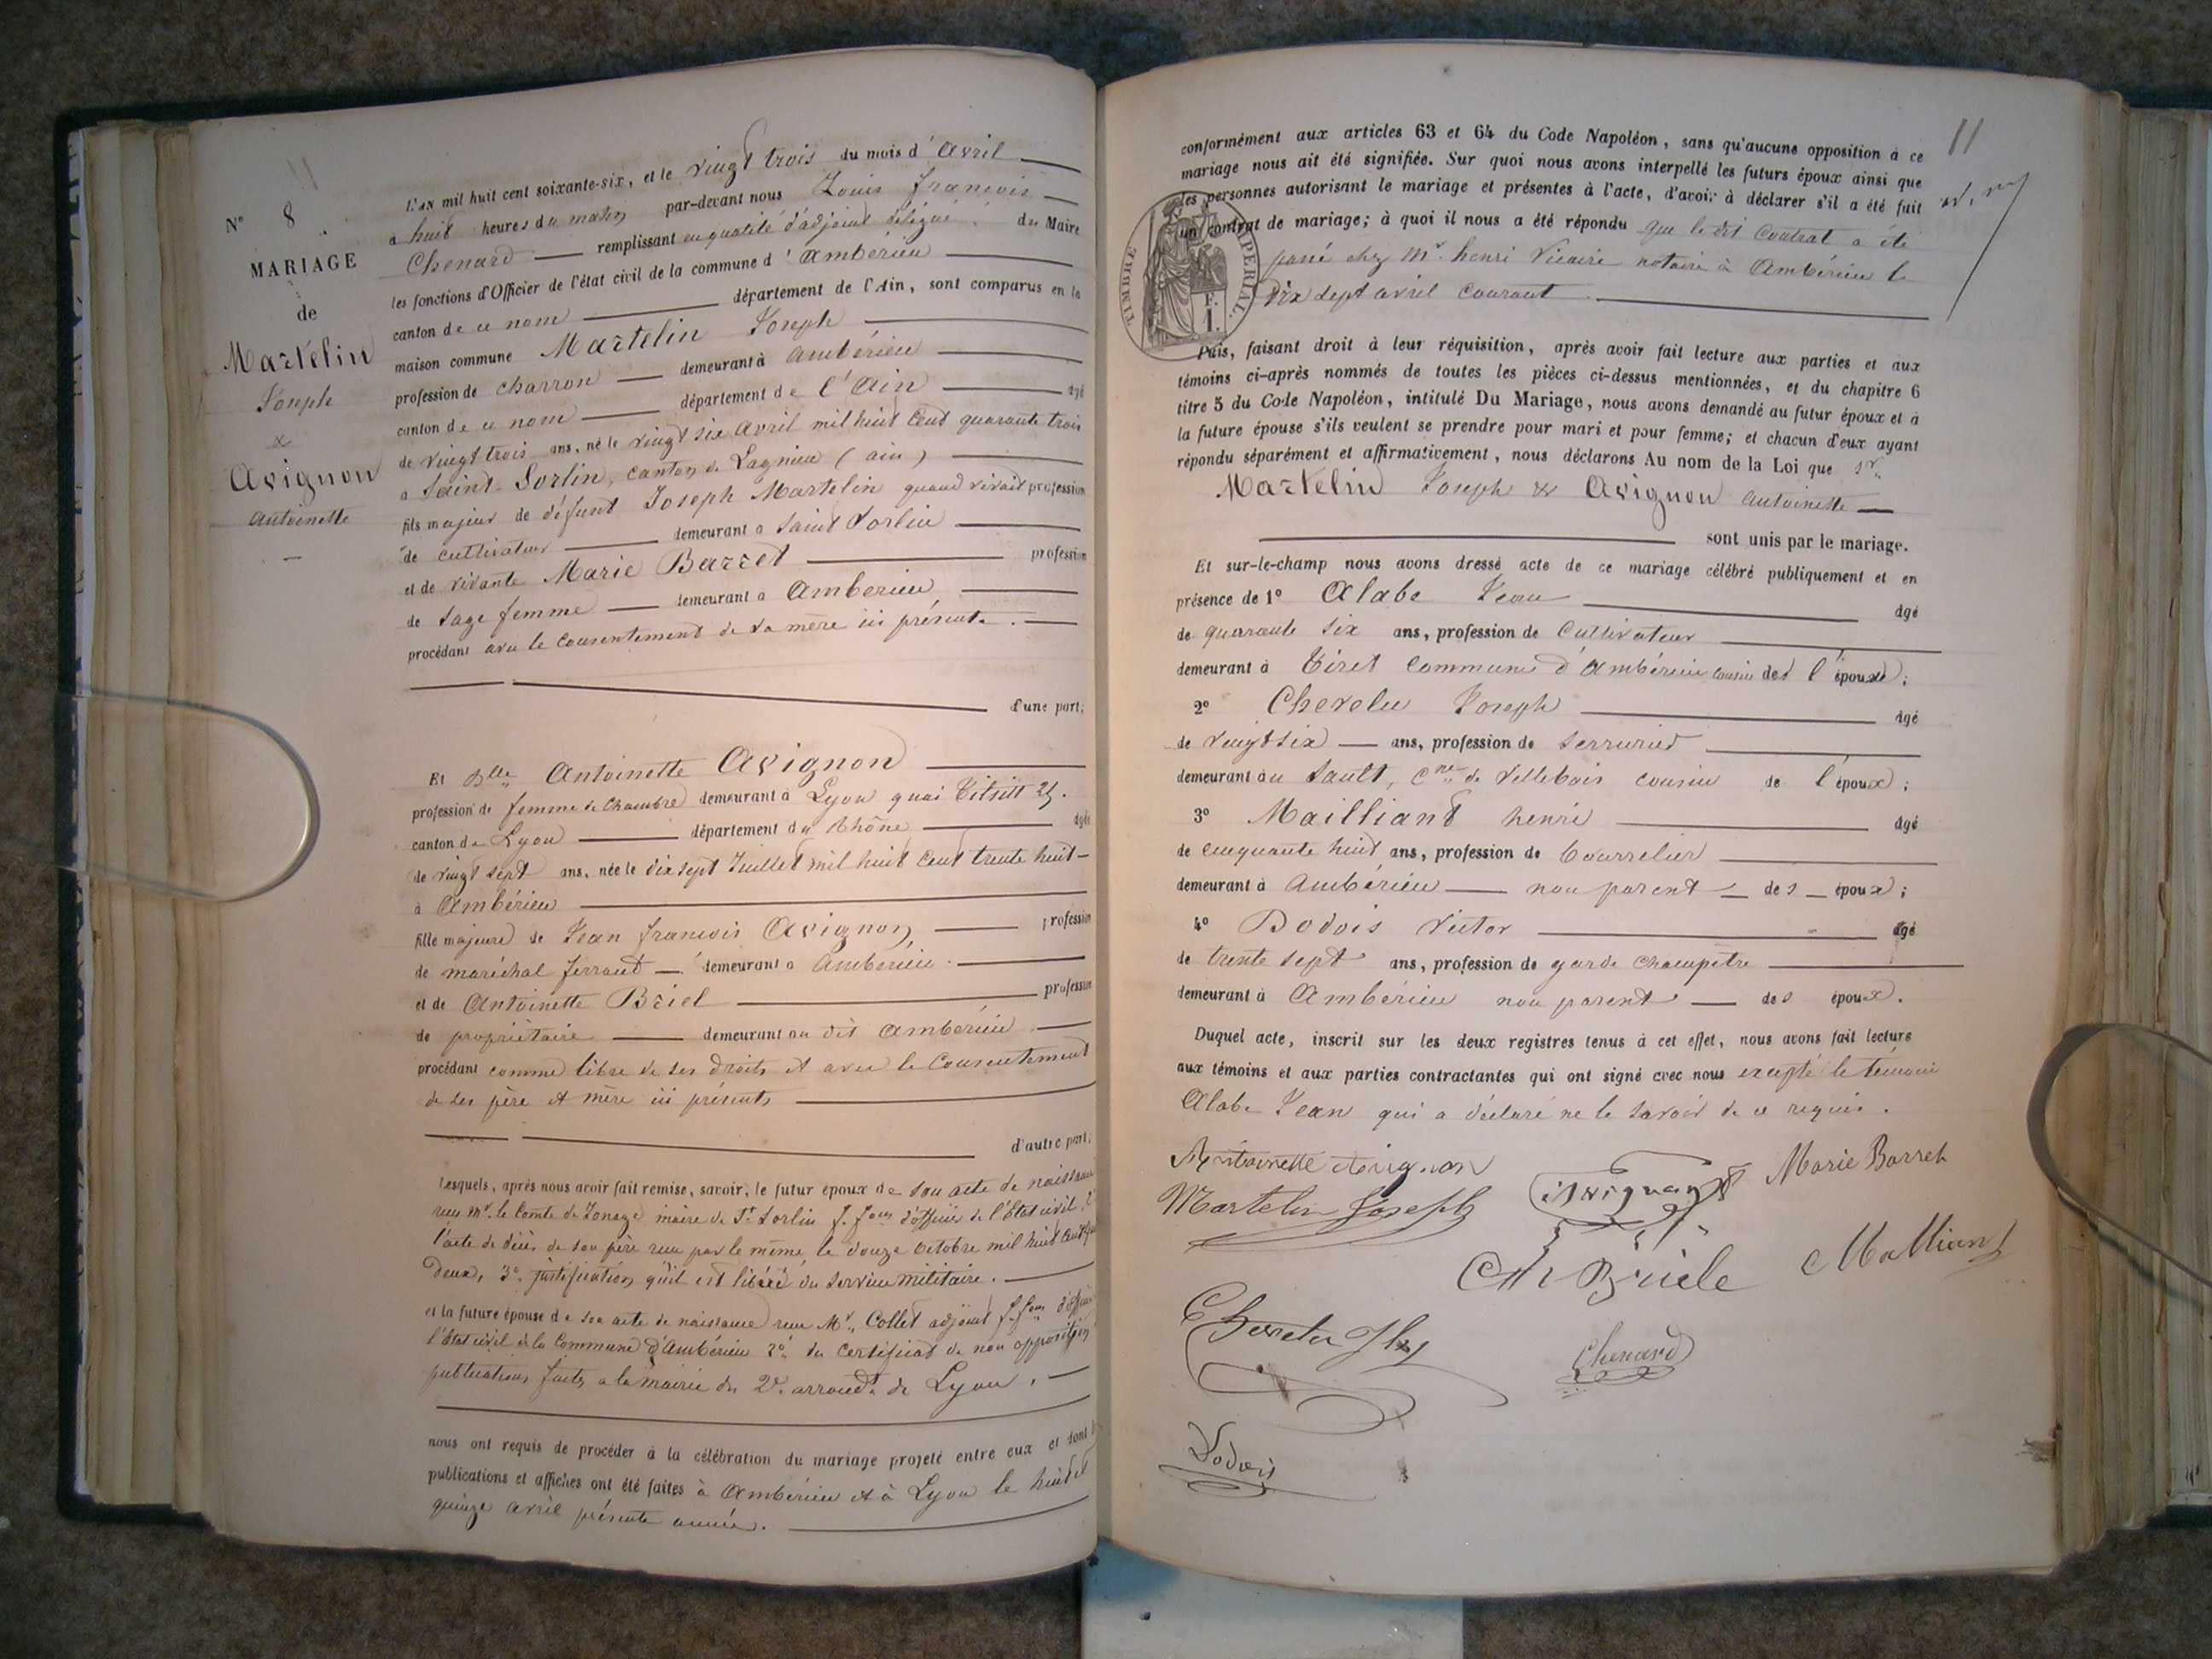 N° 8
MARIAGE
de
Martelin
Joseph
&
Avignon
Antoinette
L'an mil huit cent soixante-six, et le vingt trois du mois d'Avril
à huit heures du matin par-devant nous Louis françois
Chenard remplissant en qualité d'adjoint délégué du Maire
les fonctions d'Officier de l'état civil de la commune d'Ambérieu
canton de ce nom département de l'Ain, sont comparus en la
maison commune Martelin Joseph
profession de charron demeurant à Ambérieu
canton de ce nom département de l'Ain âgé
de vingt trois ans, né le vingt six Avril mil huit cent quarante trois
à Saint-Sorlin, canton de Lagnieu (ain)
fils majeur de défunt Joseph Martelin quand vivait profession
de cultivateur demeurant à Saint Sorlin
et de vivante Marie Barret profession
de sage femme demeurant à Amberieu
procédant avec le consentement de sa mère ici présente.
d'une part;
Et Dlle Antoinette Avignon
profession de femme de chambre demeurant à Lyon quai Tilsitt
canton de Lyon département du Rhône âgée
de vingt sept ans, née le dix sept Juillet mil huit cent trente huit
à Ambérieu
fille majeure de Jean françois Avignon profession
de maréchal ferrant demeurant à Ambérieu
et de Antoinette Briel profession
de propriétaire demeurant au dit Ambérieu
procédant comme libre de ses droits et avec le consentement
de ses père et mère ici présents
d'autre part;
Lesquels, après nous avoir fait remise, savoir, le futur époux de son acte de naissance
reçu Mr. le Comte de maire de St. Sorlin f. fons d'officier de l'État civil,
l'acte de décès de son père reçu par le même le douze octobre mil huit cent
deux, 3° justification qu'il est libéré du service militaire.
et la future épouse de son acte de naissance reçu Mr. Collet adjoint f. fons d'officier
l'État civil de la Commune d'Ambérieu 2° du certificat de non opposition
publications faites à la mairie du 2e. arrondt. de Lyon.
nous ont requis de procéder à la célébration du mariage projeté entre eux et dont
publications et affiches ont été faites à Ambérieu et à Lyon le huit et
quinze avril présente année.
11
conformément aux articles 63 et 64 du Code Napoléon, sans qu'aucune opposition à ce
mariage nous ait été signifiée. Sur quoi nous avons interpellé les futurs époux ainsi que
les personnes autorisant le mariage et présentes à l'acte, d'avoir à déclarer s'il a été fait
un contrat de mariage; à quoi il nous a été répondu que le dit contrat a été
passé chez Mr. henri Vicaire notaire à Ambérieu le
Dix sept avril courant.
TIMBRE IMPERIAL.
F.
1.
Puis, faisant droit à leur réquisition, après avoir fait lecture aux parties et aux
témoins ci-après nommés de toutes les pièces ci-dessus mentionnées, et du chapitre 6
titre 5 du Code Napoléon, intitulé Du Mariage, nous avons demandé au futur époux et à
la future épouse s'ils veulent se prendre pour mari et pour femme; et chacun d'eux ayant
répondu séparément et affirmativement, nous déclarons Au nom de la Loi que Sr.
Martelin Joseph & Avignon Antoinette
sont unis par le mariage.
Et sur-le-champ nous avons dressé acte de ce mariage célébré publiquement et en
présence de 1° Alabe Jean âgé
de quarante six ans, profession de Cultivateur
demeurant à Tiret commune d'Ambérieu cousin de l'épouse;
2° Chevelu Joseph âgé
de vingt six ans, profession de Serrurier
demeurant au Sault, Cne de Villebois cousin de l'époux;
3° Mailliand henri âgé
de cinquante huit ans, profession de bourrelier
demeurant à Ambérieu non parent des époux;
4° Dodois Victor âgé
de trente sept ans, profession de garde champêtre
demeurant à Ambérieu non parent des époux.
Duquel acte, inscrit sur les deux registres tenus à cet effet, nous avons fait lecture
aux témoins et aux parties contractantes qui ont signé avec nous excepté le témoin
Alabe Jean qui a déclaré ne le savoir de ce requis.
Antoinette Avignon
Marie Barret
Martelin Joseph
Avignon
Briele
Malliand
Chevelu
Chenard
Dodois